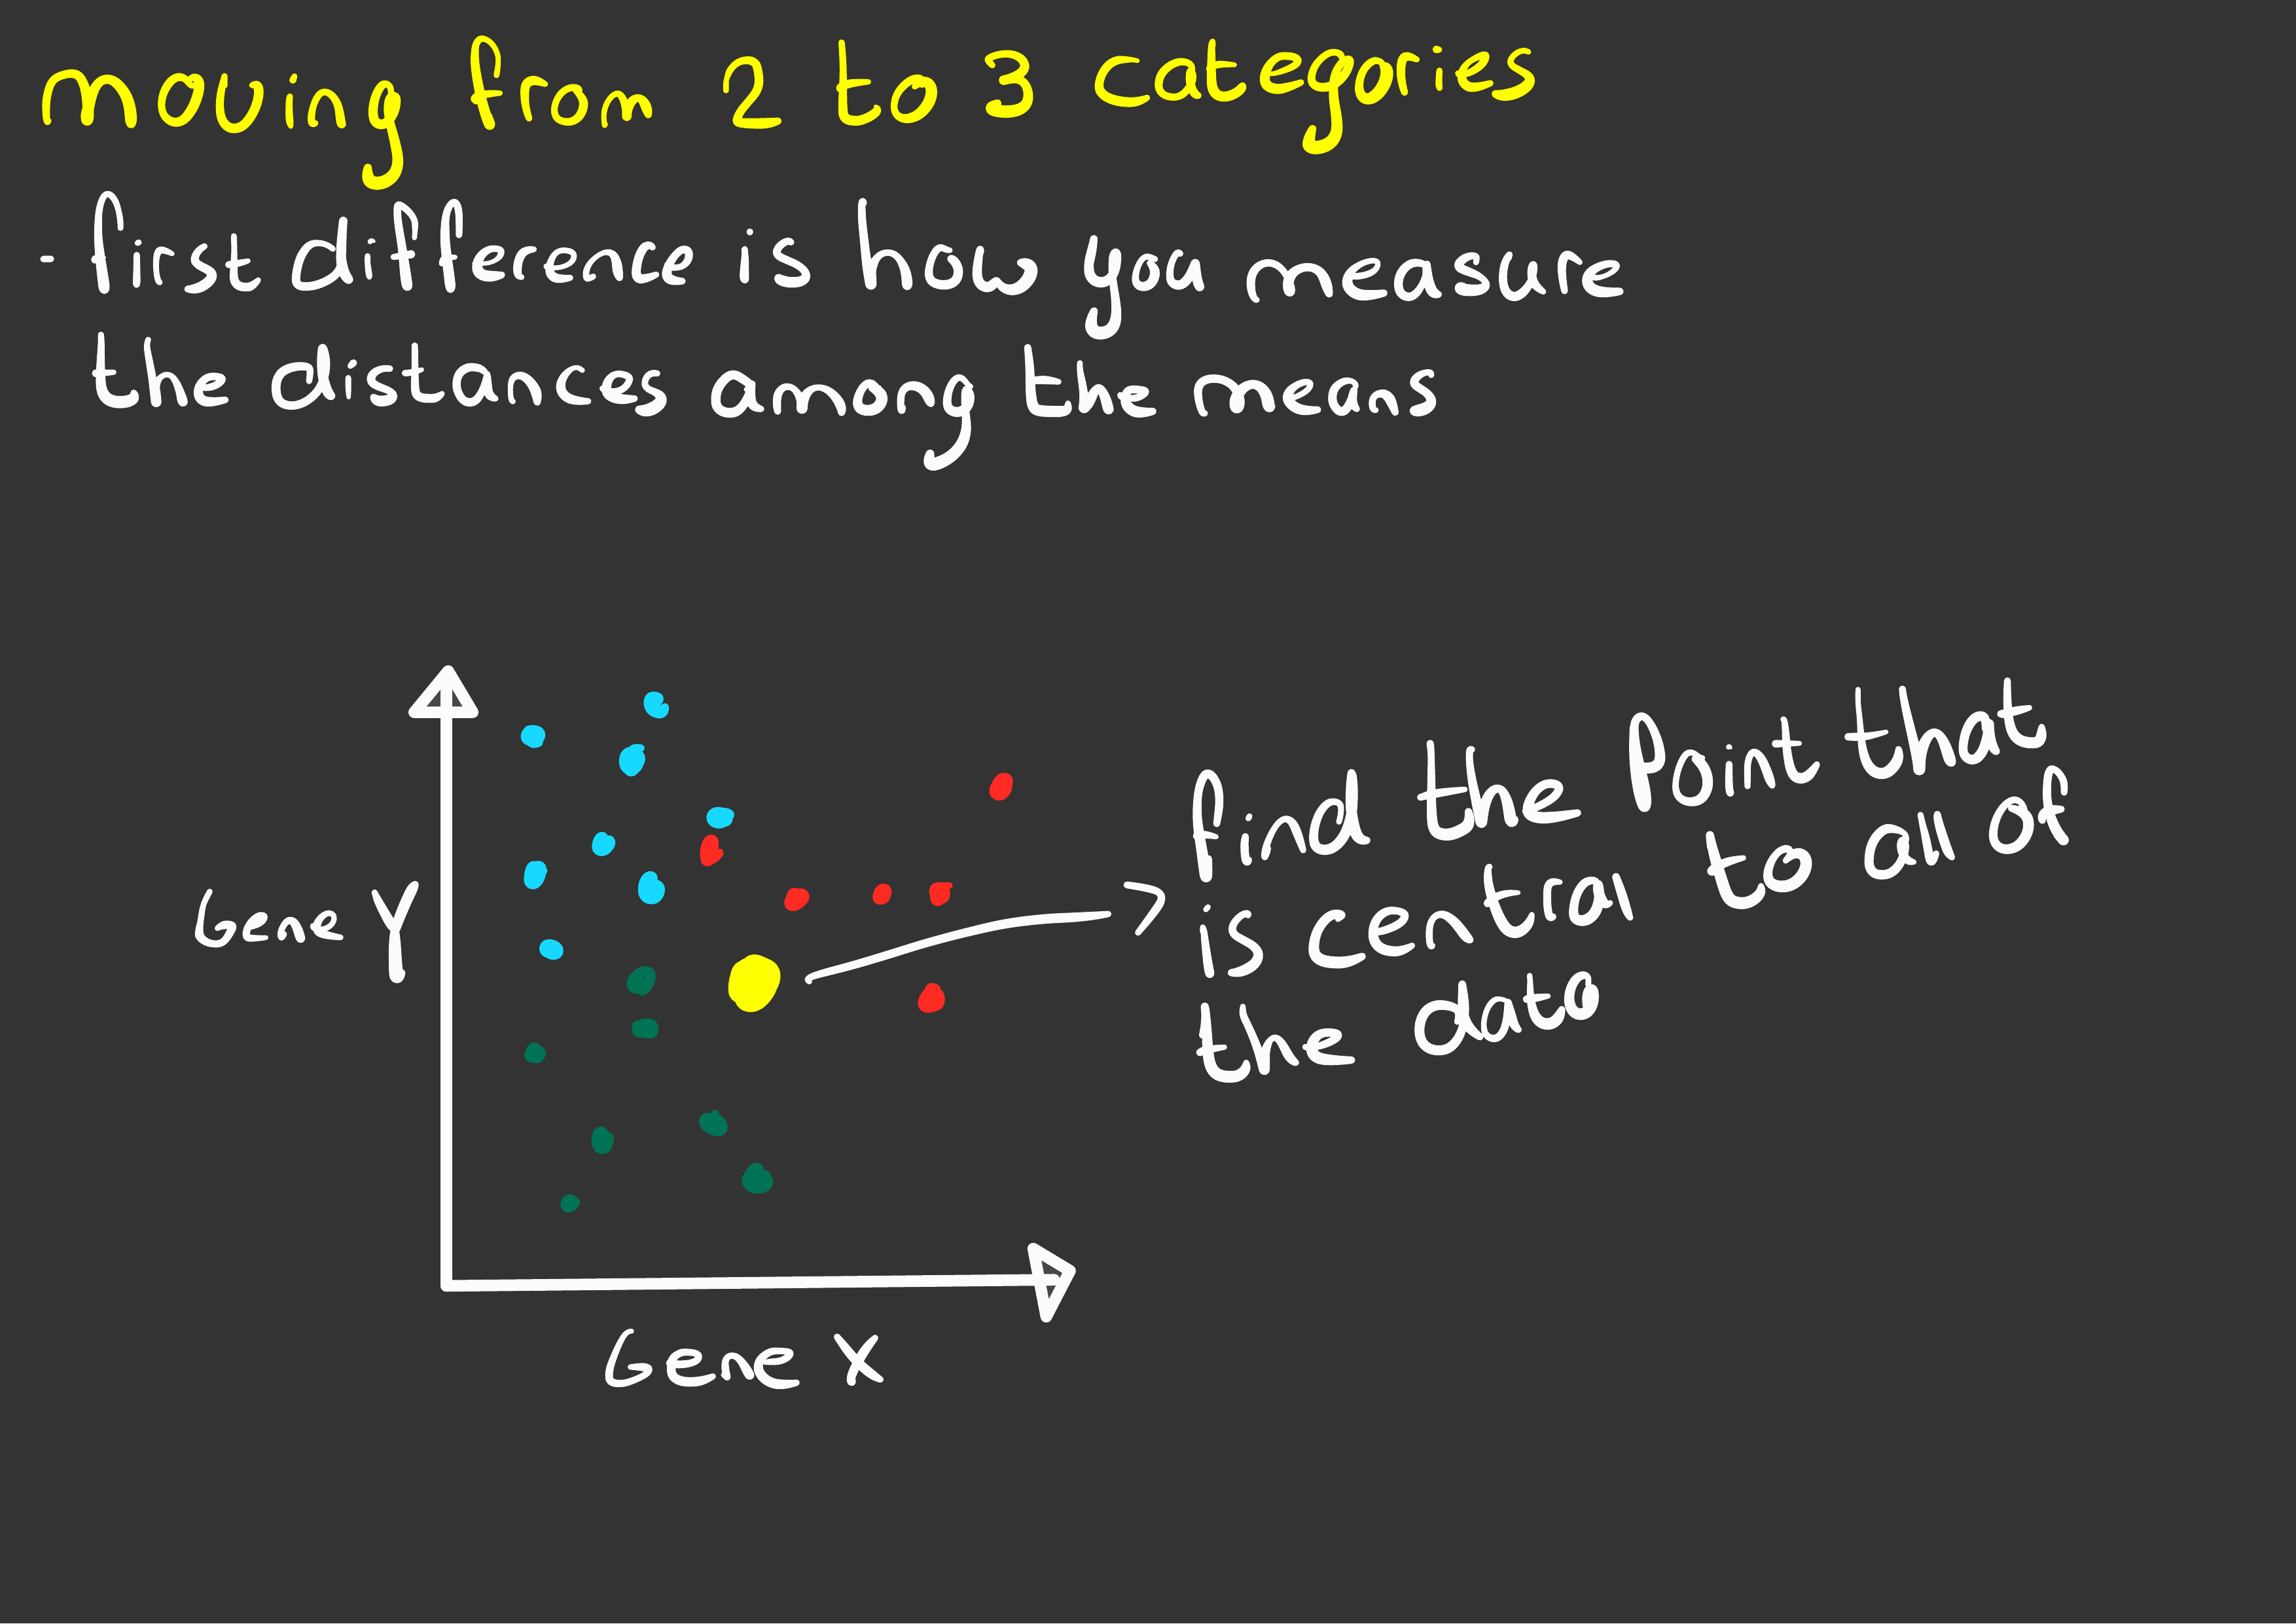 moving from 2 to 3 categories
- first difference is how you measure
the distances among the means
find the point that
is central to all of
the data
Gene Y
Gene X